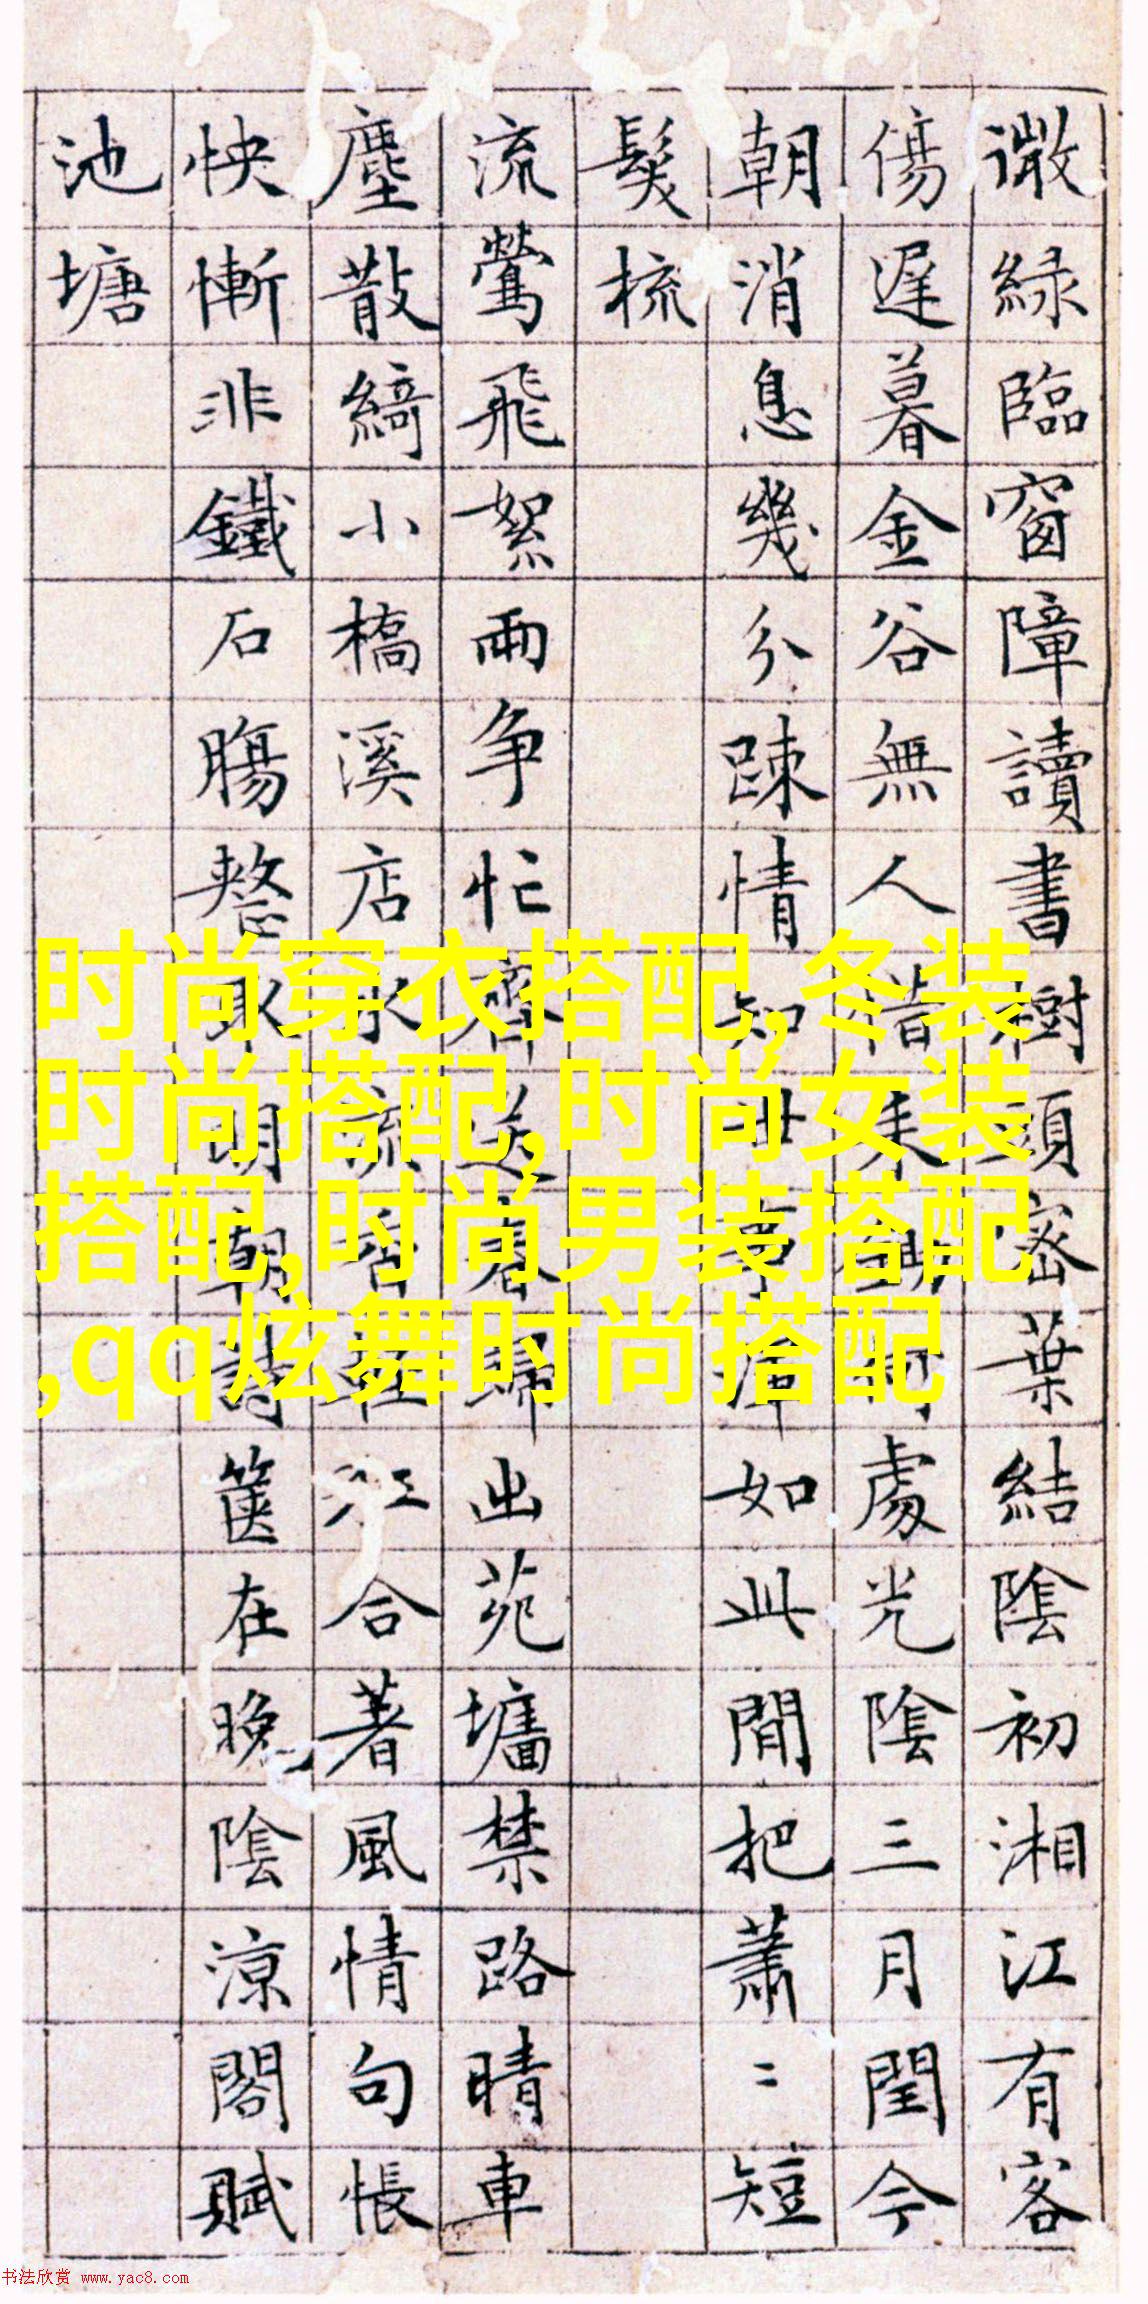 微綠臨窗障讀書樹頭密葉結陰初湘江有客
傷遲暮金谷無人惜處光陰三月閏今
朝消息幾分踈情知世事渾如此閒把蕭〻短
髮梳
流鶯飛絮兩争忙齊送春歸出苑墻禁路晴車
塵散綺小橋溪店水流香江合著風情句悵
怏慚非鐵石腸取明朝詩篋在晚陰涼閣賦
池塘
时尚穿衣搭配,冬装
时尚搭配,时尚女装
搭配,时尚男装搭配
,qq炫舞时尚搭配
书法欣赏 www.yac8.com